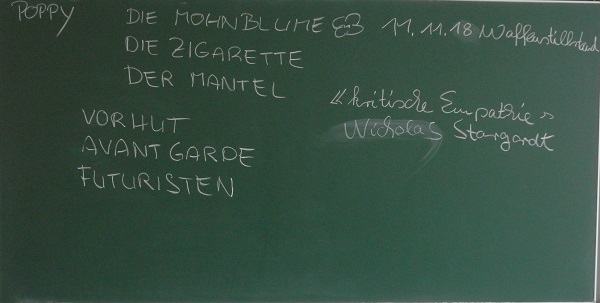 POPPY
DIE MOHNBLUME 11.11.18 Waffenstillstand
DIE ZIGARETTE
DER MANTEL
«kritische Empathie»
Nicholas Stargardt
VORHUT
AVANTGARDE
FUTURISTEN